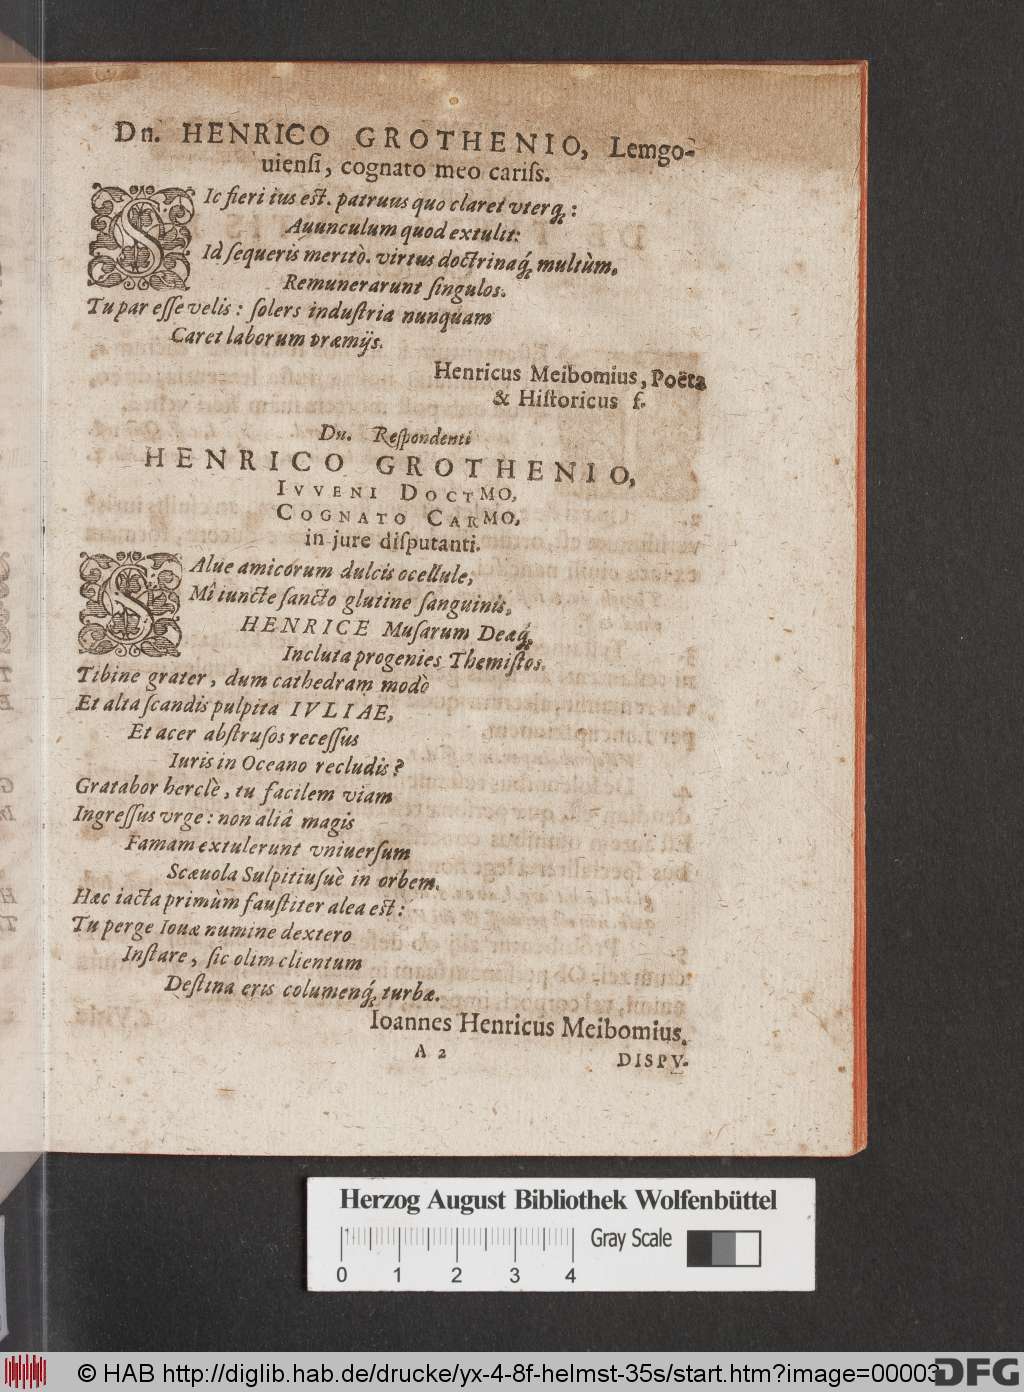 Dn. HENRICO GROTHENIO, Lemgo-
uiensi, cognato meo cariss.
SIc fieri ius est. patruus quo claret vterq́;:
Auunculum quod extulit:
Id sequeris meritò. virtus doctrinaq́; multùm,
Remunerarunt singulos.
Tu par esse velis: solers industria nunquam
Caret laborum præmijs.
Henricus Meibomius, Poëta
& Historicus f.
Dn. Respondenti
HENRICO GROTHENIO,
IVVENI DOCTMO,
COGNATO CARMO,
in jure disputanti.
SAlue amicorum dulcis ocellule,
Mî iuncte sancto glutine sanguinis,
HENRICE Musarum Deæq́;
Incluta progenies Themistos.
Tibine grater, dum cathedram modò
Et alta scandis pulpita IVLIAE,
Et acer abstrusos recessus
Iuris in Oceano recludis?
Gratabor herclè, tu facilem viam
Ingressus vrge: non aliâ magis
Famam extulerunt vniuersum
Scæuola Sulpitiusuè in orbem.
Hæc iacta primùm faustiter alea est:
Tu perge Iouæ numine dextero
Instare, sic olim clientum
Destina eris columenq́; turbæ.
Ioannes Henricus Meibomius.
A 2
DISPV-
Herzog August Bibliothek Wolfenbüttel
Gray Scale
0 1 2 3 4
© HAB http://diglib.hab.de/drucke/yx-4-8f-helmst-35s/start.htm?image=00003
DFG